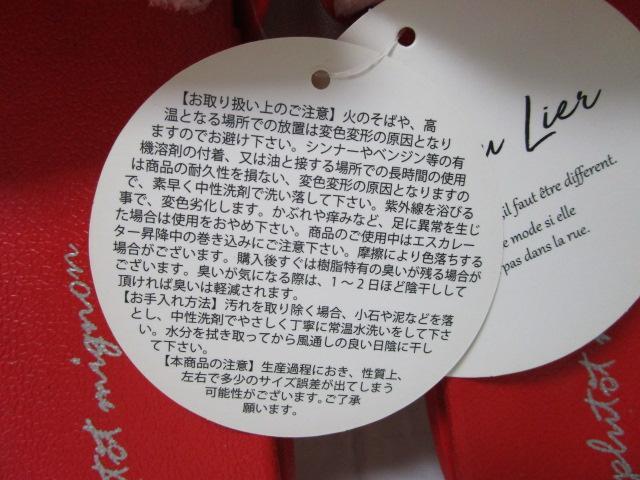 【お取り扱い上のご注意】火のそばや、高
温となる場所での放置は変色変形の原因となり
ますのでお避け下さい。シンナーやベンジン等の有
機溶剤の付着、又は油と接する場所での長時間の使用
は商品の耐久性を損ない、変色変形の原因となりますの
で、素早く中性洗剤で洗い落して下さい。紫外線を浴びる
事で、変色劣化します。かぶれや痒みなど、足に異常を生じ
た場合は使用をおやめ下さい。商品のご使用中はエスカレー
ター昇降中の巻き込みにご注意下さい。摩擦により色落ちする
場合がございます。購入後すぐは樹脂特有の臭いが残る場合が
ございます。臭いが気になる際は、1～2日ほど陰干しして
頂ければ臭いは軽減されます。
【お手入れ方法】汚れを取り除く場合、小石や泥などを落
とし、中性洗剤でやさしく丁寧に常温水洗いをして下さ
い。水分を拭き取ってから風通しの良い日陰に干し
て下さい。
【本商品の注意】生産過程におき、性質上、
左右で多少のサイズ誤差が出てしまう
可能性がございます。ご了承
願います。
Lier
il faut être different.
mode si elle
pas dans la rue.
plutôt mignon
plutôt